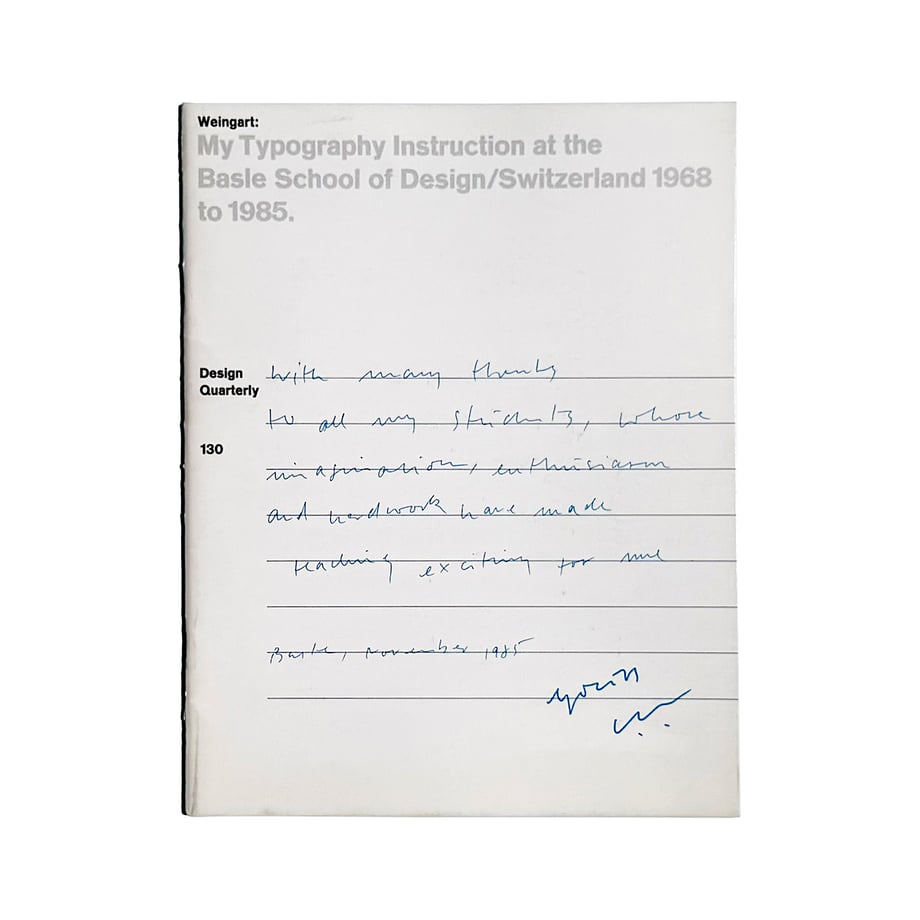 Weingart:
My Typography Instruction at the
Basle School of Design/Switzerland 1968
to 1985.
Design
Quarterly
130
with many thanks
to all my students, whose
imagination, enthusiasm
and hardwork have made
teaching exciting for me
Basle, November 1985